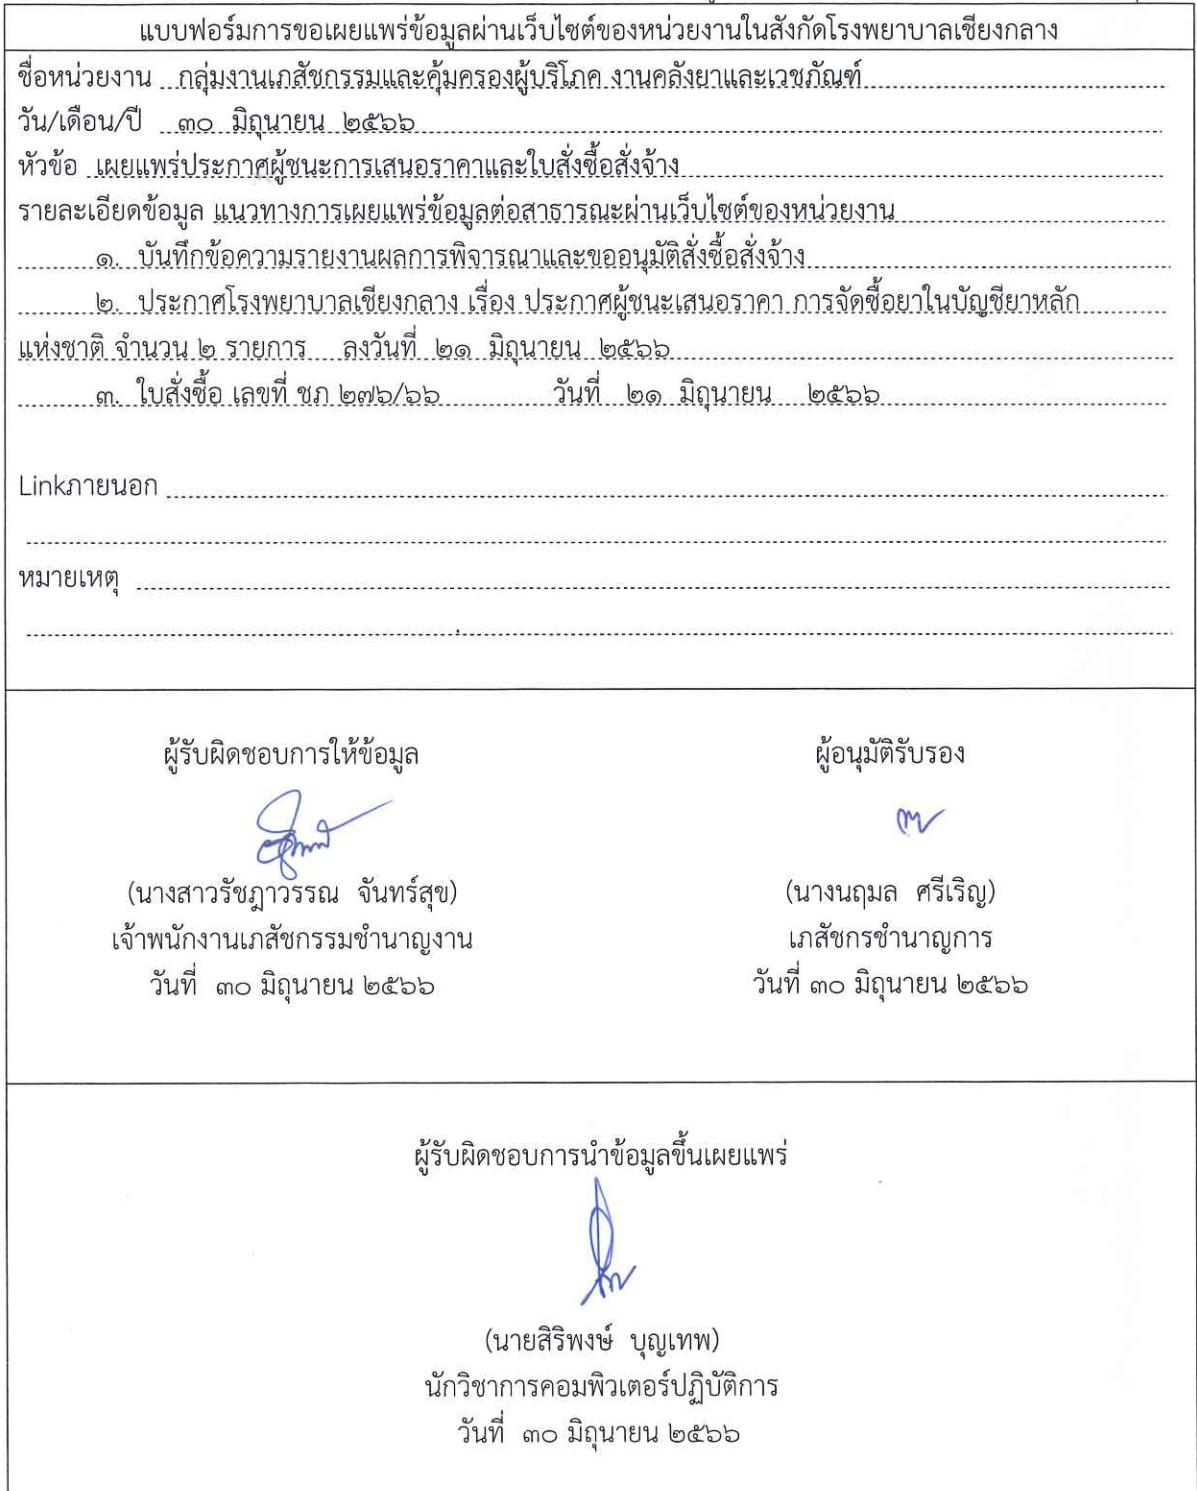 แบบฟอร์มการขอเผยแพร่ข้อมูลผ่านเว็บไซต์ของหน่วยงานในสังกัดโรงพยาบาลเชียงกลาง
ชื่อหน่วยงาน กลุ่มงานเภสัชกรรมและคุ้มครองผู้บริโภค งานคลังยาและเวชภัณฑ์
วัน/เดือน/ปี ๓๐ มิถุนายน ๒๕๖๖
หัวข้อ เผยแพร่ประกาศผู้ชนะการเสนอราคาและใบสั่งซื้อสั่งจ้าง
รายละเอียดข้อมูล แนวทางการเผยแพร่ข้อมูลต่อสาธารณะผ่านเว็บไซต์ของหน่วยงาน
๑. บันทึกข้อความรายงานผลการพิจารณาและขออนุมัติสั่งซื้อสั่งจ้าง
๒. ประกาศโรงพยาบาลเชียงกลาง เรื่อง ประกาศผู้ชนะเสนอราคา การจัดซื้อยาในบัญชียาหลัก
แห่งชาติ จำนวน ๒ รายการ ลงวันที่ ๒๑ มิถุนายน ๒๕๖๖
๓. ใบสั่งซื้อ เลขที่ ชภ ๒๗๖/๖๖ วันที่ ๒๑ มิถุนายน ๒๕๖๖
Linkภายนอก
หมายเหตุ
ผู้รับผิดชอบการให้ข้อมูล ผู้อนุมัติรับรอง
(นางสาวรัชฎาวรรณ จันทร์สุข) (นางนฤมล ศรีเริญ)
เจ้าพนักงานเภสัชกรรมชำนาญงาน เภสัชกรชำนาญการ
วันที่ ๓๐ มิถุนายน ๒๕๖๖ วันที่ ๓๐ มิถุนายน ๒๕๖๖
ผู้รับผิดชอบการนำข้อมูลขึ้นเผยแพร่
(นายสิริพงษ์ บุญเทพ)
นักวิชาการคอมพิวเตอร์ปฏิบัติการ
วันที่ ๓๐ มิถุนายน ๒๕๖๖